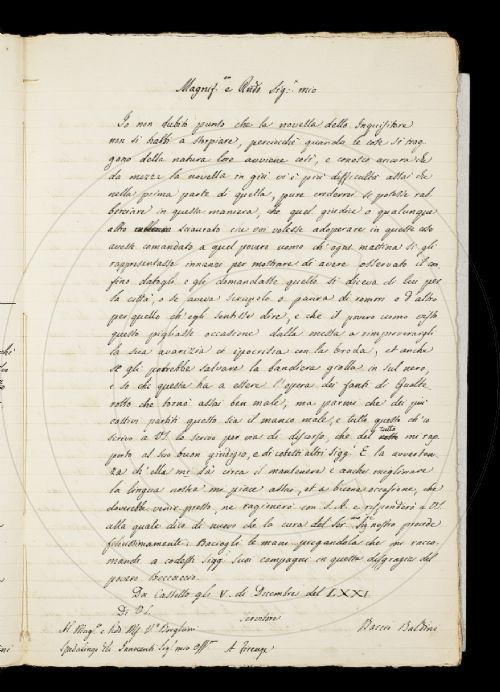 Magnif.co e Rndo Sig.r mio
Io non dubito punto che la novella dello Inquisitore
non si habbi a storpiare, perciochè quando le cose si trag
gono della natura loro avviene così, e conosco ancora che
da mezza la novella in giù vi è più difficultà assai che
nella prima parte di quella, pure crederei si potesse rab
berciare in questa maniera, che quel giudice o qualunque
altro sciaurato che voi volesse adoperare in questo caso
avesse comandato a quel povero uomo ch'ogni mattina si gli
rappresentasse innanzi per mostrare di avere osservato il con
fino datogli e gli domandasse quello si diceva di lui per
la città, o se aveva scrupolo o paura di romori o d'altro
per quello ch'egli sentisse dire, e che il povero uomo
questo pigliasse occasione dalla messa a rimproverargli
la sua avarizia et ipocrisia con la broda, et anche
se gli potrebbe salvare la bandiera gialla in sul nero,
e so che questa ha a essere l'opera dei fanti di
rotto che tornò assai ben male, ma parmi che dei più
cattivi partiti questo sia il manco male, e tutto questo ch'io
scrivo a VS. lo scrivo per via di discorso, che del tutto mi rap
porto al suo buon giudizio, e di cotesti altri Sigg.i E la avverten
za ch'ella mi dà circa il mantenere e anche migliorare
la lingua nostra mi piace assai, et a buona occasione, che
doverebbe venir presto, ne ragionerò con S. A. e risponderò a VS.
alla quale dico di nuovo che la cura del Ser.mo Sig. nostro procede
felicissimamente. Baciogli le mani pregandola che mi racco
mandi a codesti Sigg.i suoi compagni in questa disgrazia del
povero Boccaccio.
Da Castello gli V. di Decembre del LXXI
Di VS.
Servitore
Al Mag.co e Rdo Msr Vo Borghini Baccio Baldini
Spedalingo degli Innocenti Sig.r mio Oss.mo A Firenze